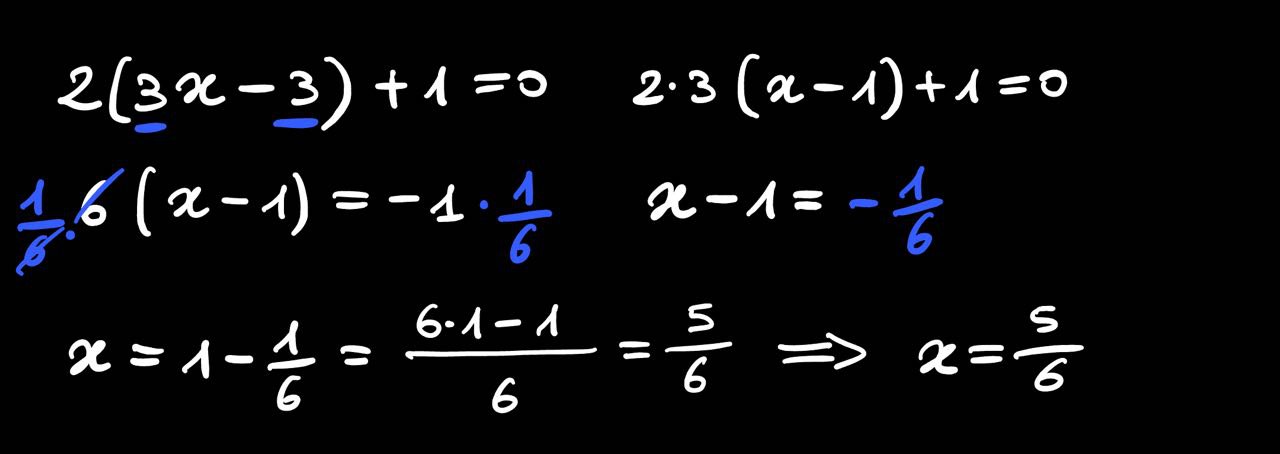 2(3x-3)+1=0 2·3(x-1)+1=0
1/6·6(x-1)=-1·1/6 x-1=-1/6
x=1-1/6=(6·1-1)/6=5/6 ⇒ x=5/6